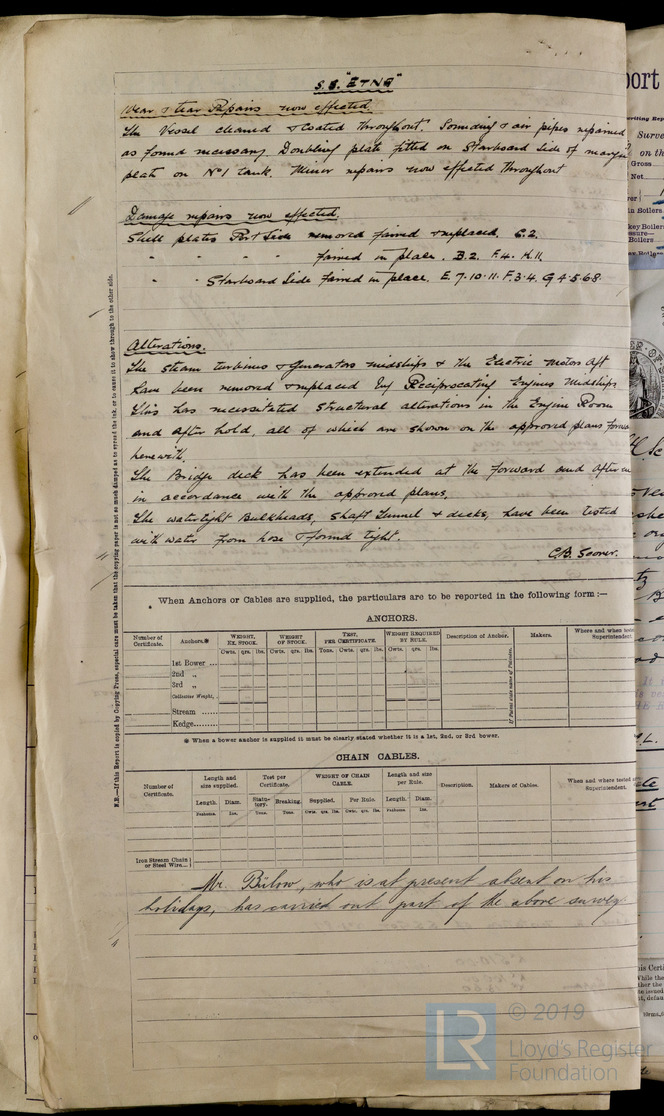 S.S. "ETNA"
Wear & tear Repairs now effected.
The Vessel cleaned & coated throughout. Sounding & air pipes repaired
as found necessary. Doubling plate fitted on Starboard Side of margin
plate on No 1 tank. Minor repairs now effected throughout
Damage repairs now effected.
Shell plates Port Side removed faired & replaced. C.2.
" " " " faired in place. B.2. F.4. H.11.
" " Starboard Side faired in place. E.7.10.11. F.3.4. G.4.5.6.8.
Alterations.
The steam turbines & Generators midships & the Electric motors aft
have been removed & replaced by Reciprocating Engines Midships
This has necessitated structural alterations in the Engine Room
and after hold, all of which are shown on the approved plans
herewith.
The Bridge deck has been extended at the forward and after
in accordance with the approved plans.
The watertight Bulkheads, Shaft Tunnel & decks, have been tested
with water from hose & found tight.
C.B.
N.B.—If this Report is copied by Copying Press, especial care must be taken that the copying paper is not so much damped as to spread the ink, or to cause it to show through to the other side.
When Anchors or Cables are supplied, the particulars are to be reported in the following form :—
ANCHORS.
Number of Certificate. Anchors.* WEIGHT, EX. STOCK. WEIGHT OF STOCK. TEST, PER CERTIFICATE. WEIGHT REQUIRED BY RULE. Description of Anchor. Makers. Where and when Superintendent.
Cwts. qrs. lbs. Cwts. qrs. lbs. Tons. Cwts. qrs. lbs. Cwts. qrs. lbs.
1st Bower ...
2nd „
3rd „
Collective Weight,
Stream ......
Kedge.........
If Patent state name of Patentee.
* When a bower anchor is supplied it must be clearly stated whether it is a 1st, 2nd, or 3rd bower.
CHAIN CABLES.
Number of Certificate. Length and size supplied. Test per Certificate. WEIGHT OF CHAIN CABLE. Length and size per Rule. Description. Makers of Cables. When and where tested Superintendent.
Length. Diam. Statutory. Breaking. Supplied. Per Rule. Length. Diam.
Fathoms. Ins. Tons. Tons. Cwts. qrs. lbs. Cwts. qrs. lbs. Fathoms. Ins.
Iron Stream Chain or Steel Wire...
Mr. Bülow, who is at present absent on his
holidays, has carried out part of the above survey
© 2019
LR
Lloyd's Register
Foundation